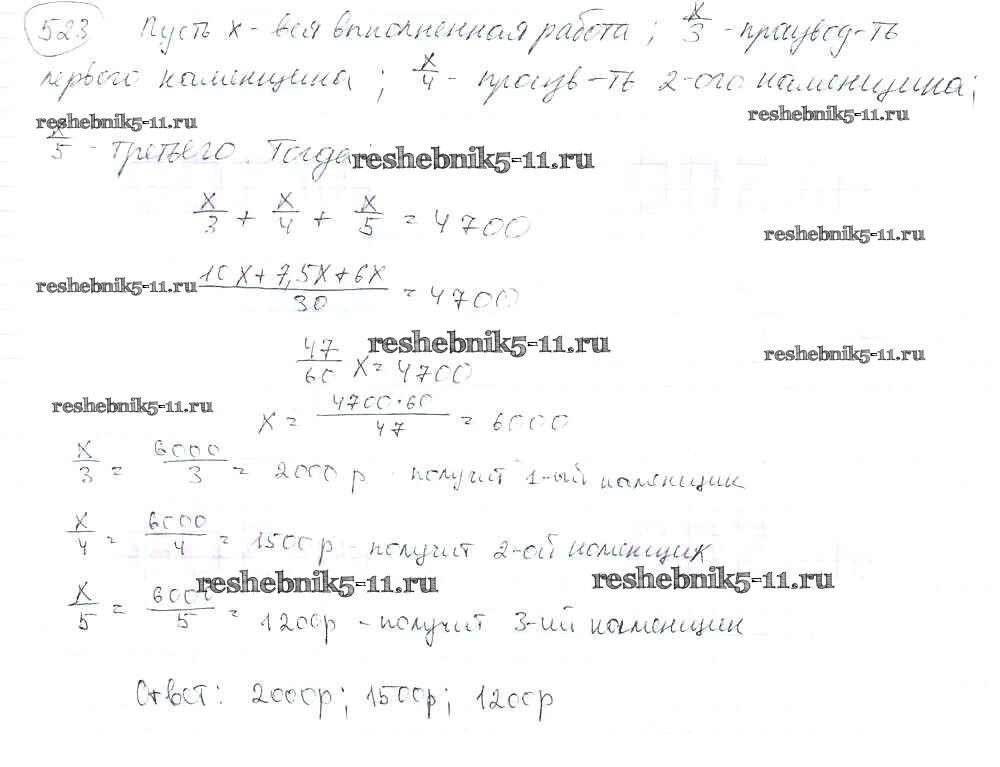 523 Пусть х - вся вполненная работа; х/3 - працвод-ть
первого каменщика; х/4 - произв-ть 2-ого каменщика;
reshebnik5-11.ru reshebnik5-11.ru
х/5 - третьего. Тогда: reshebnik5-11.ru
х/3 + х/4 + х/5 = 4700
reshebnik5-11.ru
reshebnik5-11.ru (10х+7,5х+6х)/30 = 4700
reshebnik5-11.ru reshebnik5-11.ru
47/60 х = 4700
reshebnik5-11.ru
х = (4700·60)/47 = 6000
х/3 = 6000/3 = 2000 р - получит 1-ый каменщик
х/4 = 6000/4 = 1500р - получит 2-ой каменщик
reshebnik5-11.ru reshebnik5-11.ru
х/5 = 6000/5 = 1200р - получит 3-ий каменщик
Ответ: 2000р; 1500р; 1200р